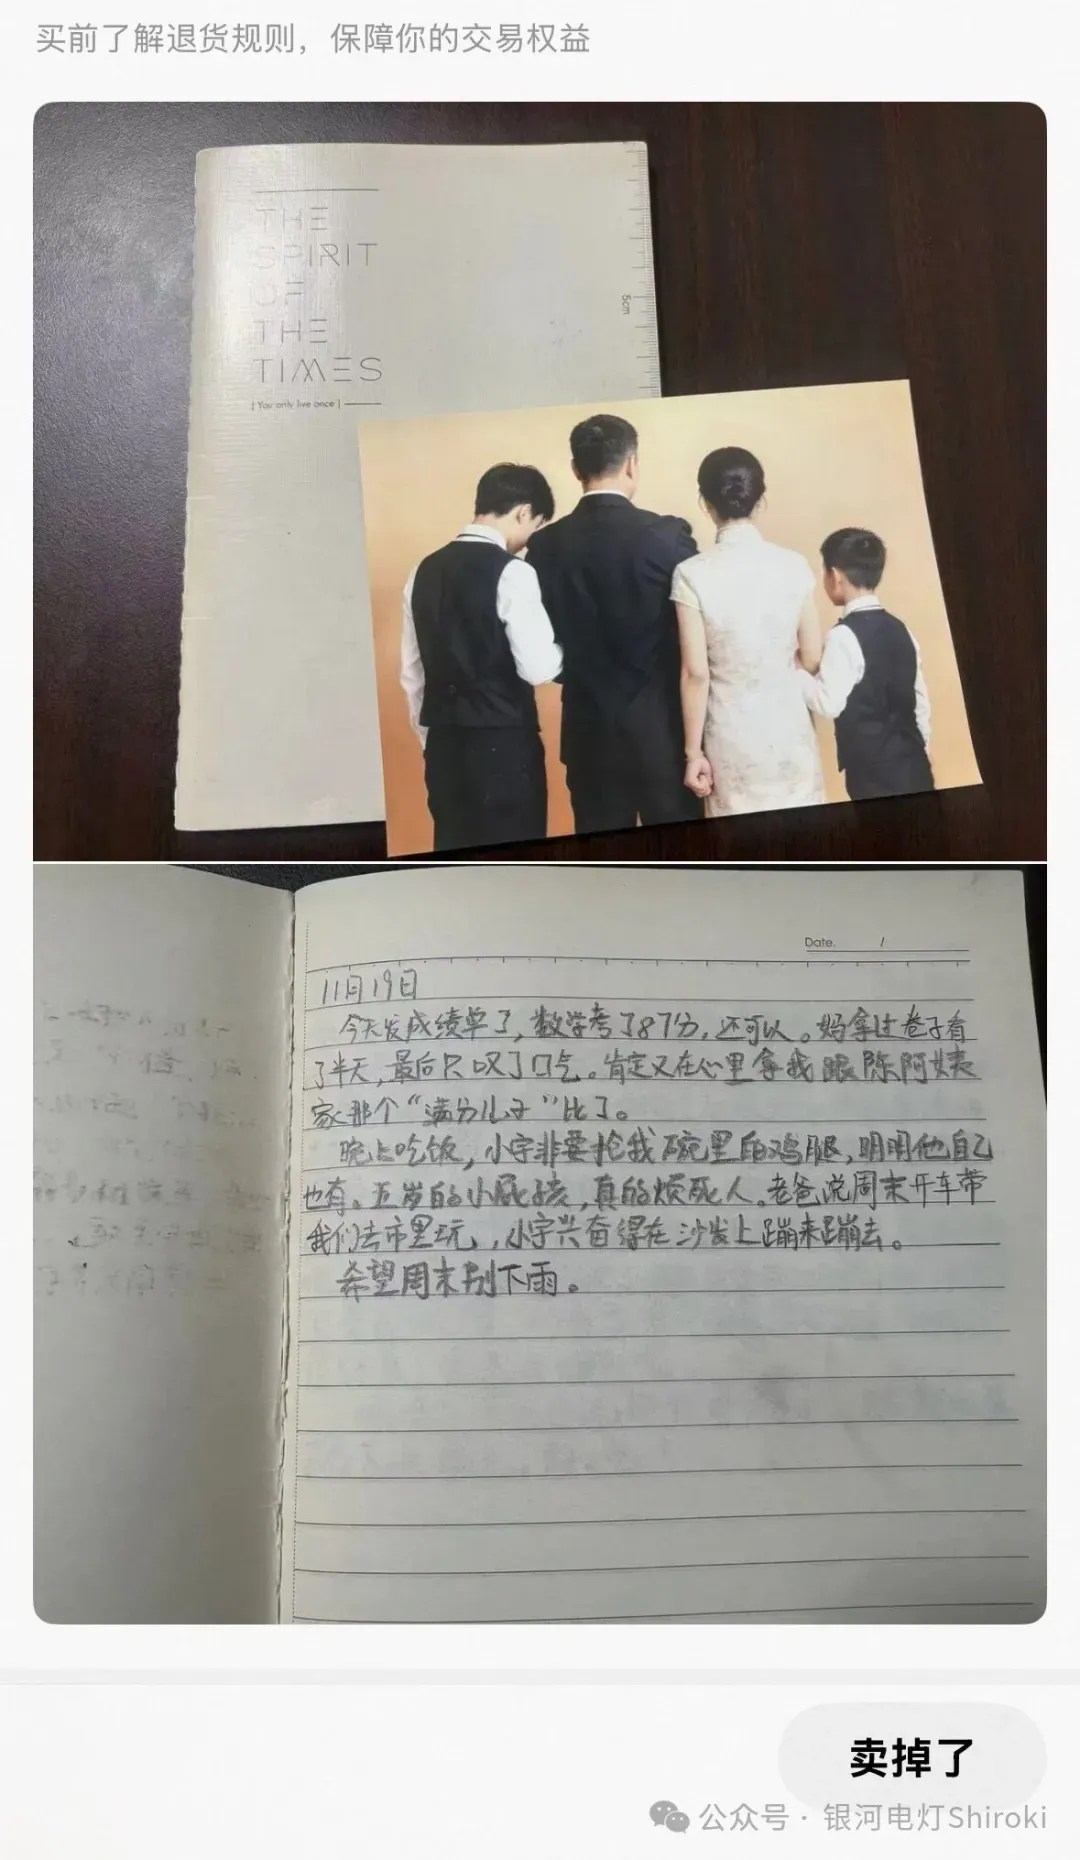 买前了解退货规则，保障你的交易权益
THE
SPIRIT
OF
THE
TIMES
[ You only live once ]
5cm
Date. /
11月19日
今天发成绩单了，数学考了87分，还可以。妈拿过卷子看
了半天，最后只叹了口气。肯定又在心里拿我跟陈阿姨
家那个“满分儿子”比了。
晚上吃饭，小宇非要抢我碗里的鸡腿，明明他自己
也有。五岁的小屁孩，真的烦死人。老爸说周末开车带
我们去市里玩，小宇兴奋得在沙发上蹦来蹦去。
希望周末别下雨。
卖掉了
公众号 · 银河电灯Shiroki